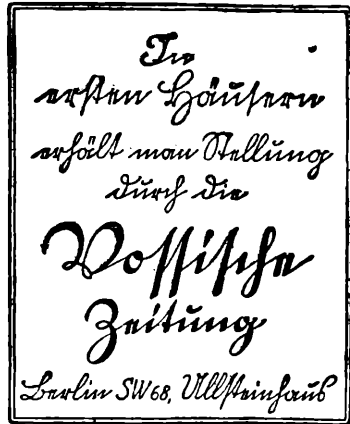 In
ersten Häusern
erhält man Stellung
durch die
Vossische
Zeitung
Berlin SW 68, Ullsteinhaus